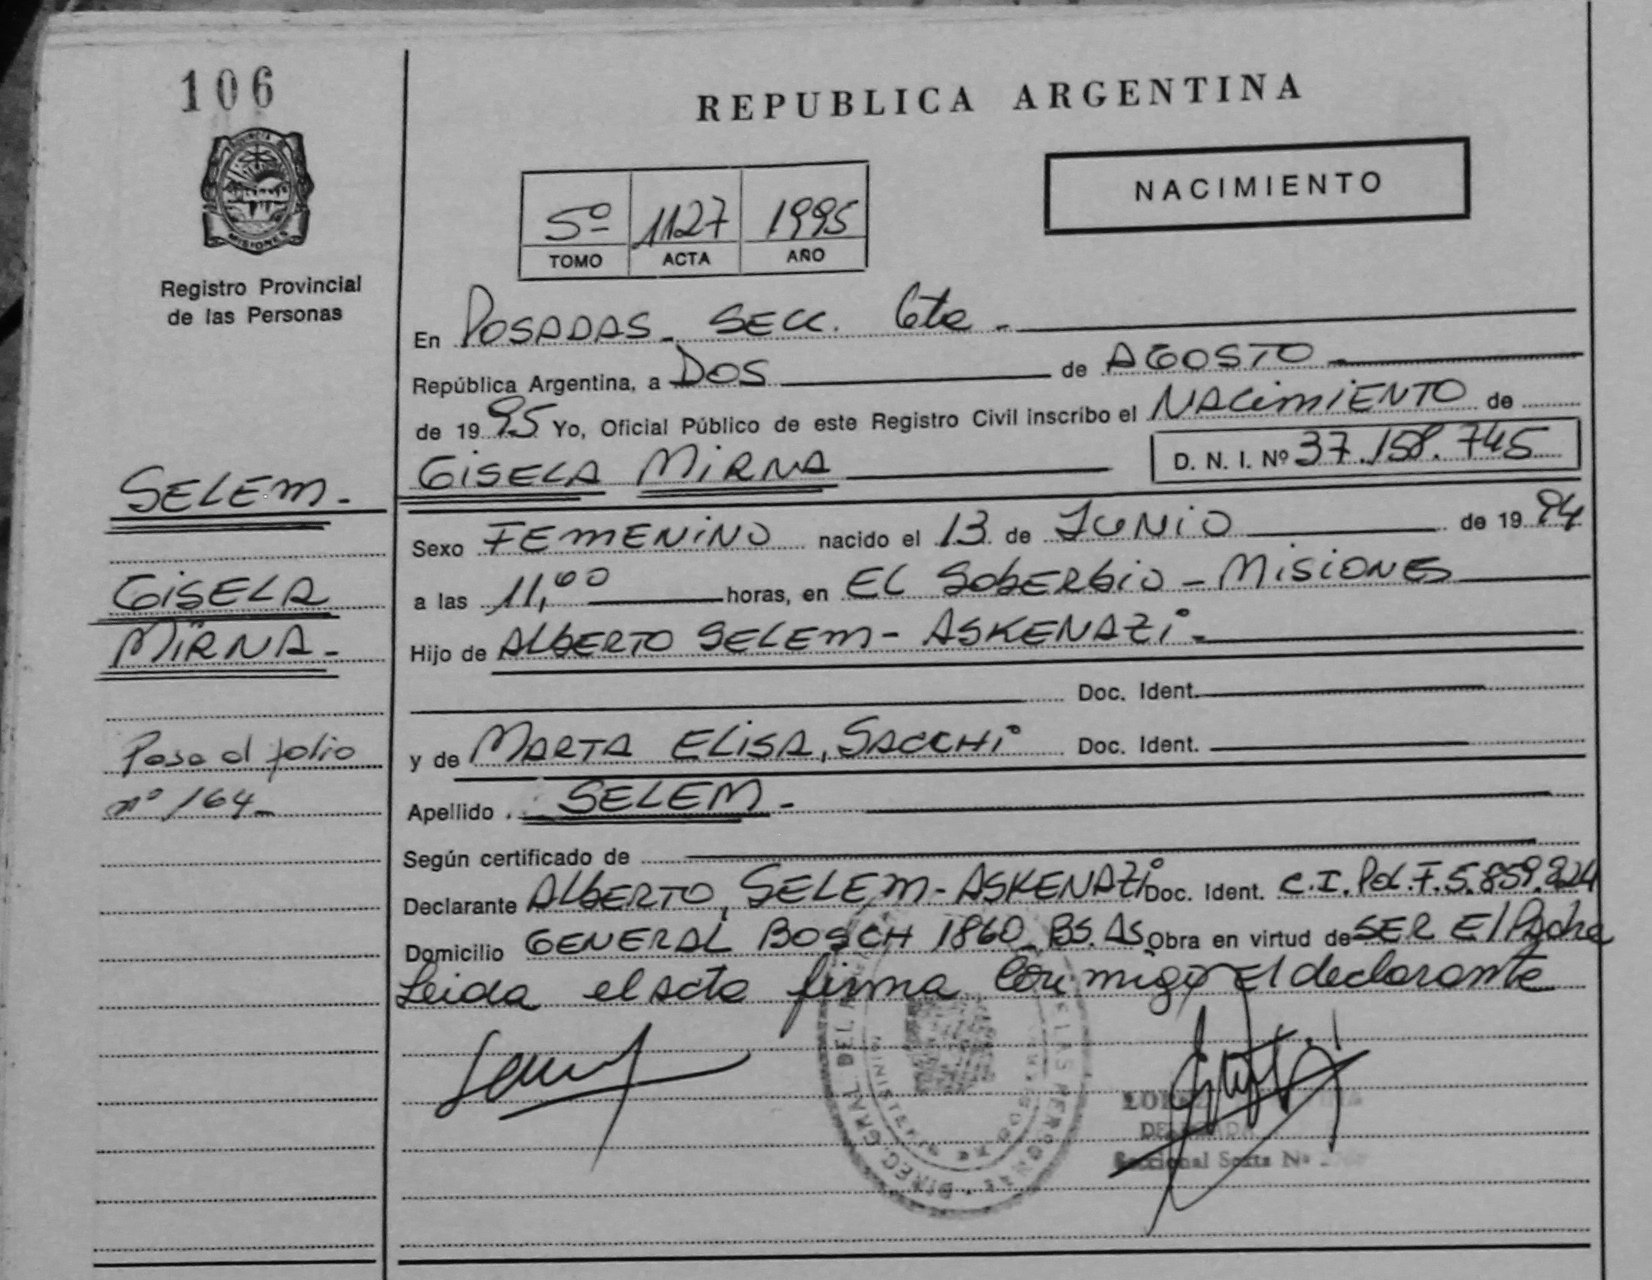 106
REPUBLICA ARGENTINA
PROVINCIA DE
MISIONES
Registro Provincial
de las Personas
NACIMIENTO
5º 1127 1995
TOMO ACTA AÑO
En POSADAS - SECC. 6ta -
República Argentina, a DOS de AGOSTO -
de 1995 Yo, Oficial Público de este Registro Civil inscribo el NACIMIENTO de
GISELA MIRNA D. N. I. Nº 37.158.745
SELEM -
GISELA
MIRNA -
Sexo FEMENINO nacido el 13 de JUNIO de 1994
a las 11,00 horas, en EL SOBERBIO - MISIONES
Hijo de ALBERTO SELEM - ASKENAZI -
Doc. Ident.
y de MARTA ELISA, SACCHI Doc. Ident.
Pasa al folio
nº 164 -
Apellido SELEM -
Según certificado de
Declarante ALBERTO, SELEM - ASKENAZI Doc. Ident. C.I. Pol. F. 5.859.824
Domicilio GENERAL BOSCH 1860 - BS. AS Obra en virtud de SER El Padre
Leida el acta firma conmigo El declarante
DIREC. GRAL. DEL
DE LAS PERSONAS
MINISTERIO DE GOBIERNO
DELEGADA
Seccional Sexta Nº